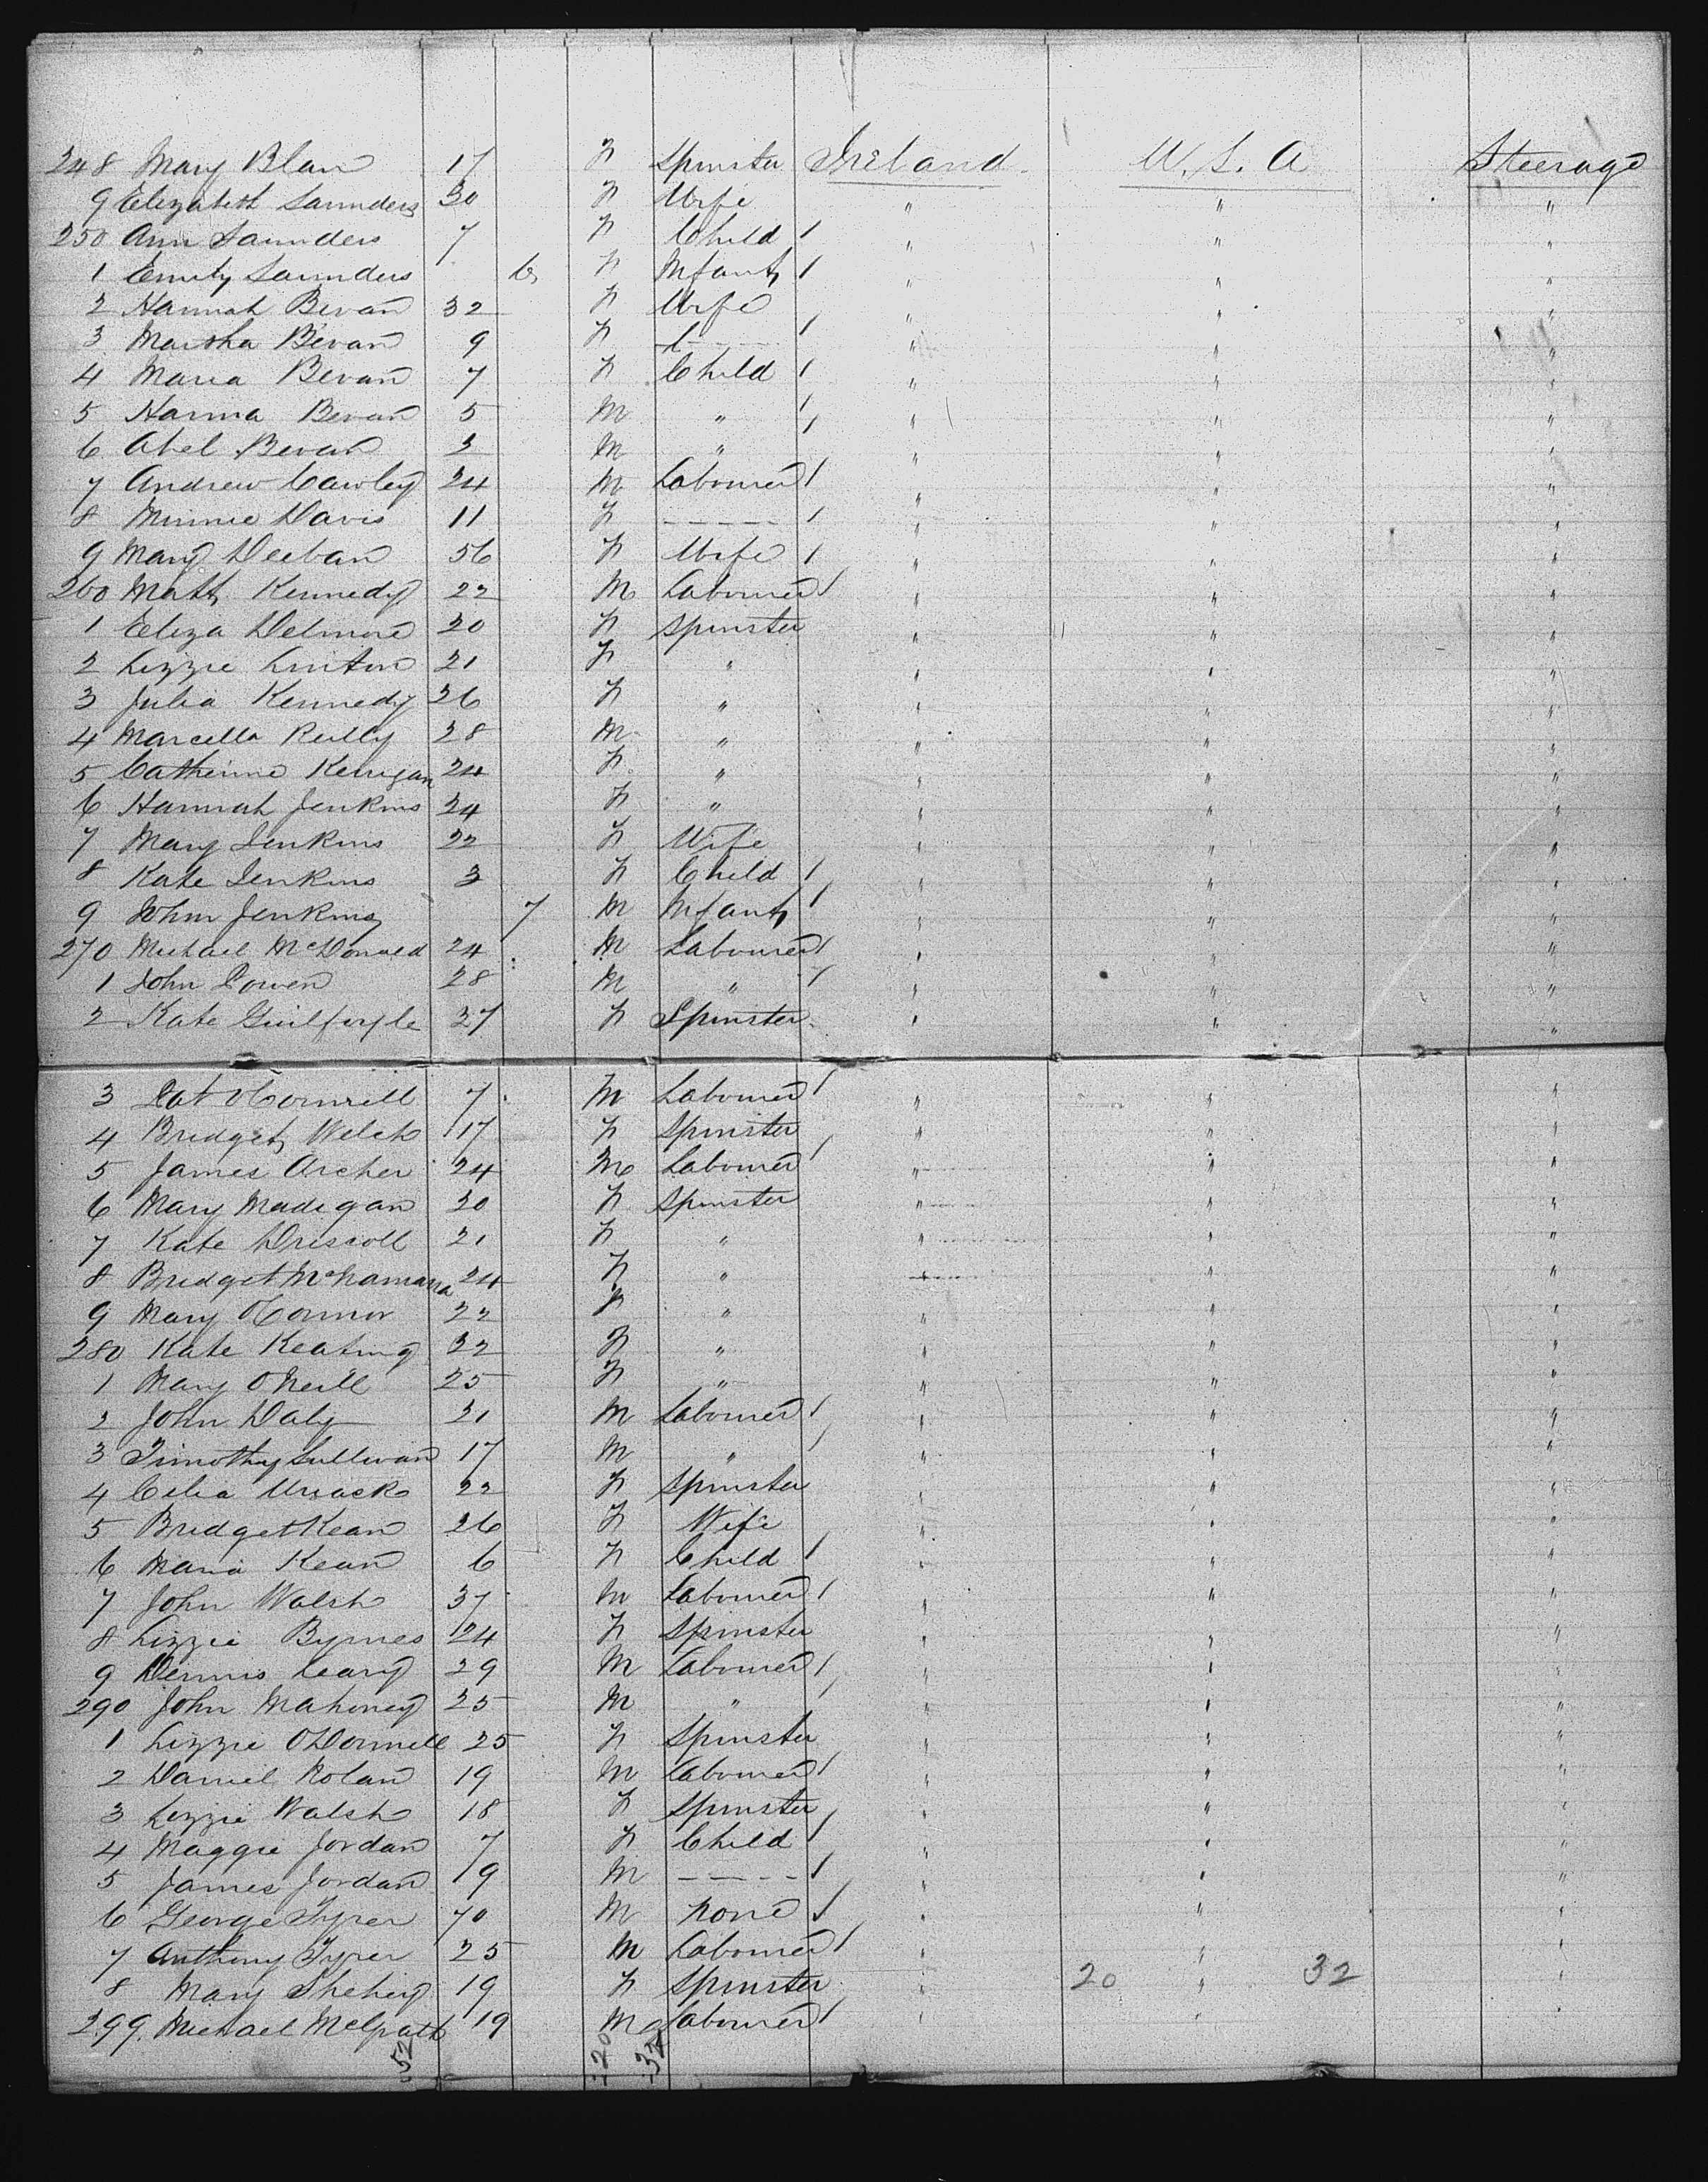 248 Mary Blan 17 F Spinster Ireland U.S.A Steerage
9 Elizabeth Saunders 30 F Wife " " "
250 Ann Saunders 7 F Child / " " "
1 Emily Saunders 6 F Infant / " " "
2 Hannah Bevan 32 F Wife " " "
3 Martha Bevan 9 F ---- / " " "
4 Maria Bevan 7 F Child / " " "
5 Hanna Bevan 5 M " / " " "
6 Abel Bevan 3 M " / " " "
7 Andrew Cawley 24 M Labourer / " " "
8 Minnie Davis 11 F ----- / " " "
9 Mary Deeban 56 F Wife / " " "
260 Matt Kennedy 22 M Labourer / " " "
1 Eliza Delmore 20 F Spinster " " "
2 Lizzie Linton 21 F " " " "
3 Julia Kennedy 26 F " " " "
4 Marcella Reilly 28 M " " " "
5 Catherine Kerrigan 24 F " " " "
6 Hannah Jenkins 24 F " " " "
7 Mary Jenkins 22 F Wife " " "
8 Kate Jenkins 3 F Child / " " "
9 John Jenkins 7 M Infant / " " "
270 Michael McDonald 24 M Labourer / " " "
1 John Power 28 M " / " " "
2 Kate Guilfoyle 27 F Spinster " " "
3 Pat OConnell 7 M Labourer / " " "
4 Bridget Welch 17 F Spinster " " "
5 James Archer 24 M Labourer / " " "
6 Mary Madigan 20 F Spinster " " "
7 Kate Driscoll 21 F " " " "
8 Bridget McNamara 24 F " " " "
9 Mary OConnor 22 F " " " "
280 Kate Keating 22 F " " " "
1 Mary ONeill 25 F " " " "
2 John Daly 21 M Labourer / " " "
3 Timothy Sullivan 17 M " / " " "
4 Celia Cusack 22 F Spinster " " "
5 Bridget Kean 26 F Wife " " "
6 Maria Kean 6 F Child / " " "
7 John Walsh 37 M Labourer / " " "
8 Lizzie Byrnes 24 F Spinster " " "
9 Dennis Leary 29 M Labourer / " " "
290 John Mahoney 25 M " / " " "
1 Lizzie ODonnell 25 F Spinster " " "
2 Daniel Nolan 19 M Labourer / " " "
3 Lizzie Walsh 18 F Spinster " " "
4 Maggie Jordan 7 F Child / " " "
5 James Jordan 19 M ----- / " " "
6 George Tyrer 70 M None / " " "
7 Anthony Tyrer 25 M Labourer / " " "
8 Mary Shehey 19 F Spinster " 20 " 32 "
299. Michael McGrath 19 M Labourer / " " "
52 20 32